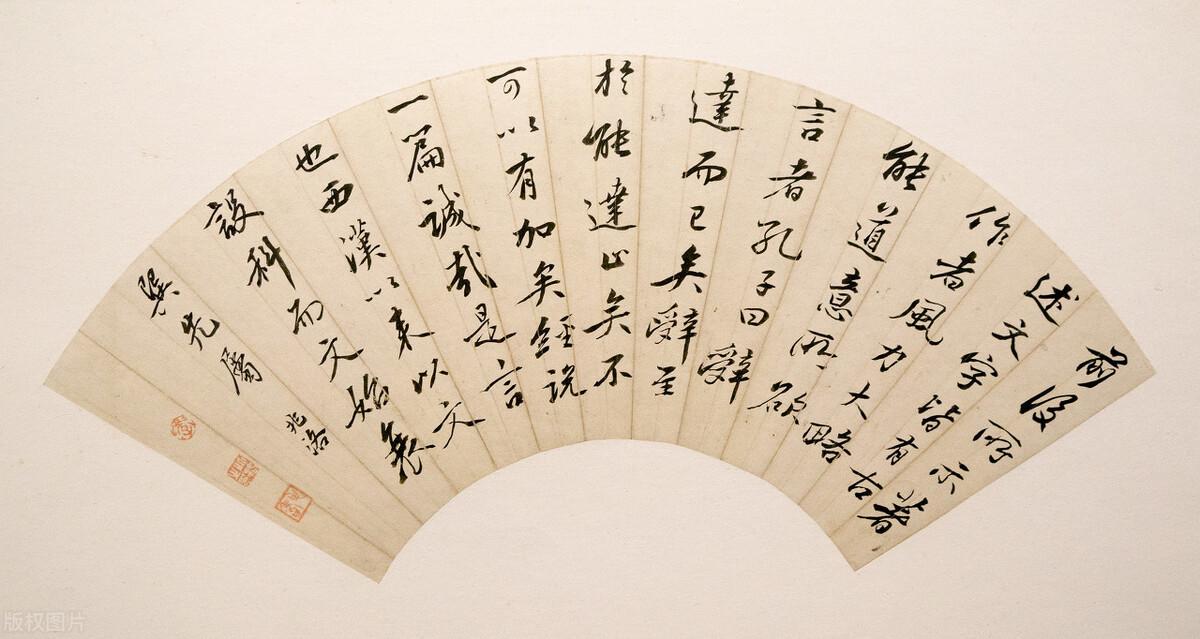 前後所示著
述文字皆有古
作者風力大略
能道意所欲
言者孔子曰辭
達而已矣辭至
於能達止矣不
可以有加矣經説
一篇誠哉是言
也西漢以來以文
設科而文始衰
巽先屬
兆洛
版权图片